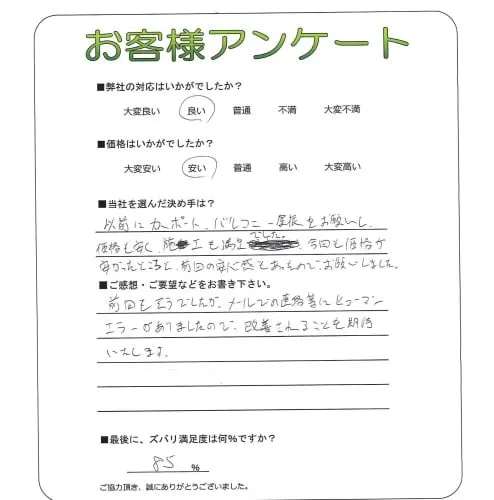 お客様アンケート
■弊社の対応はいかがでしたか?
大変良い 良い 普通 不満 大変不満
■価格はいかがでしたか?
大変安い 安い 普通 高い 大変高い
■当社を選んだ決め手は?
以前にカーポート、バルコニー屋根をお願いし、
価格も安く、施工も満足でした。今回も価格が
安かったところと、前回の安心感もあったので、お願いしました。
■ご感想・ご要望などをお書き下さい。
前回もそうでしたが、メールでの連絡等にヒューマン
エラーがありましたので、改善されることを期待
いたします。
■最後に、ズバリ満足度は何%ですか?
85 %
ご協力頂き、誠にありがとうございました。